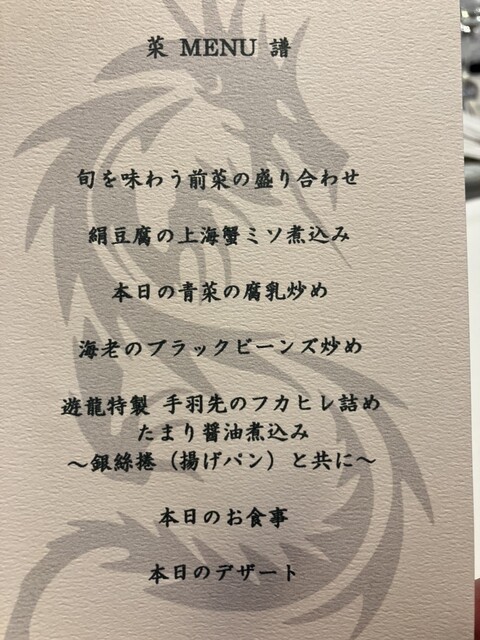 菜 MENU 譜
旬を味わう前菜の盛り合わせ
絹豆腐の上海蟹ミソ煮込み
本日の青菜の腐乳炒め
海老のブラックビーンズ炒め
遊龍特製 手羽先のフカヒレ詰め
たまり醤油煮込み
～銀絲捲（揚げパン）と共に～
本日のお食事
本日のデザート